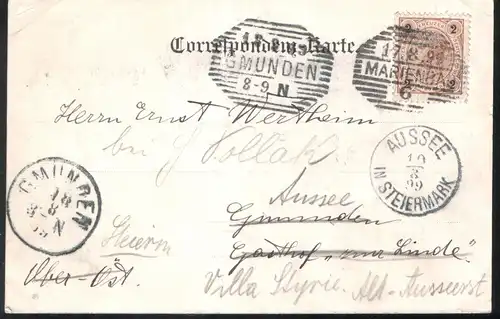 Correspondenz-Karte
GMUNDEN
8-9 N
17 8 99
MARIENBAD
6
2 2
2 2
Herrn Ernst Wertheim
bei J. Pollak
AUSSEE
19
8
99
IN STEIERMARK
GMUNDEN
18
8
N
Aussee
Gmunden
Steierm
Gasthof „zur Linde"
Ober-Öst.
Villa Styria. Alt-Ausseerst